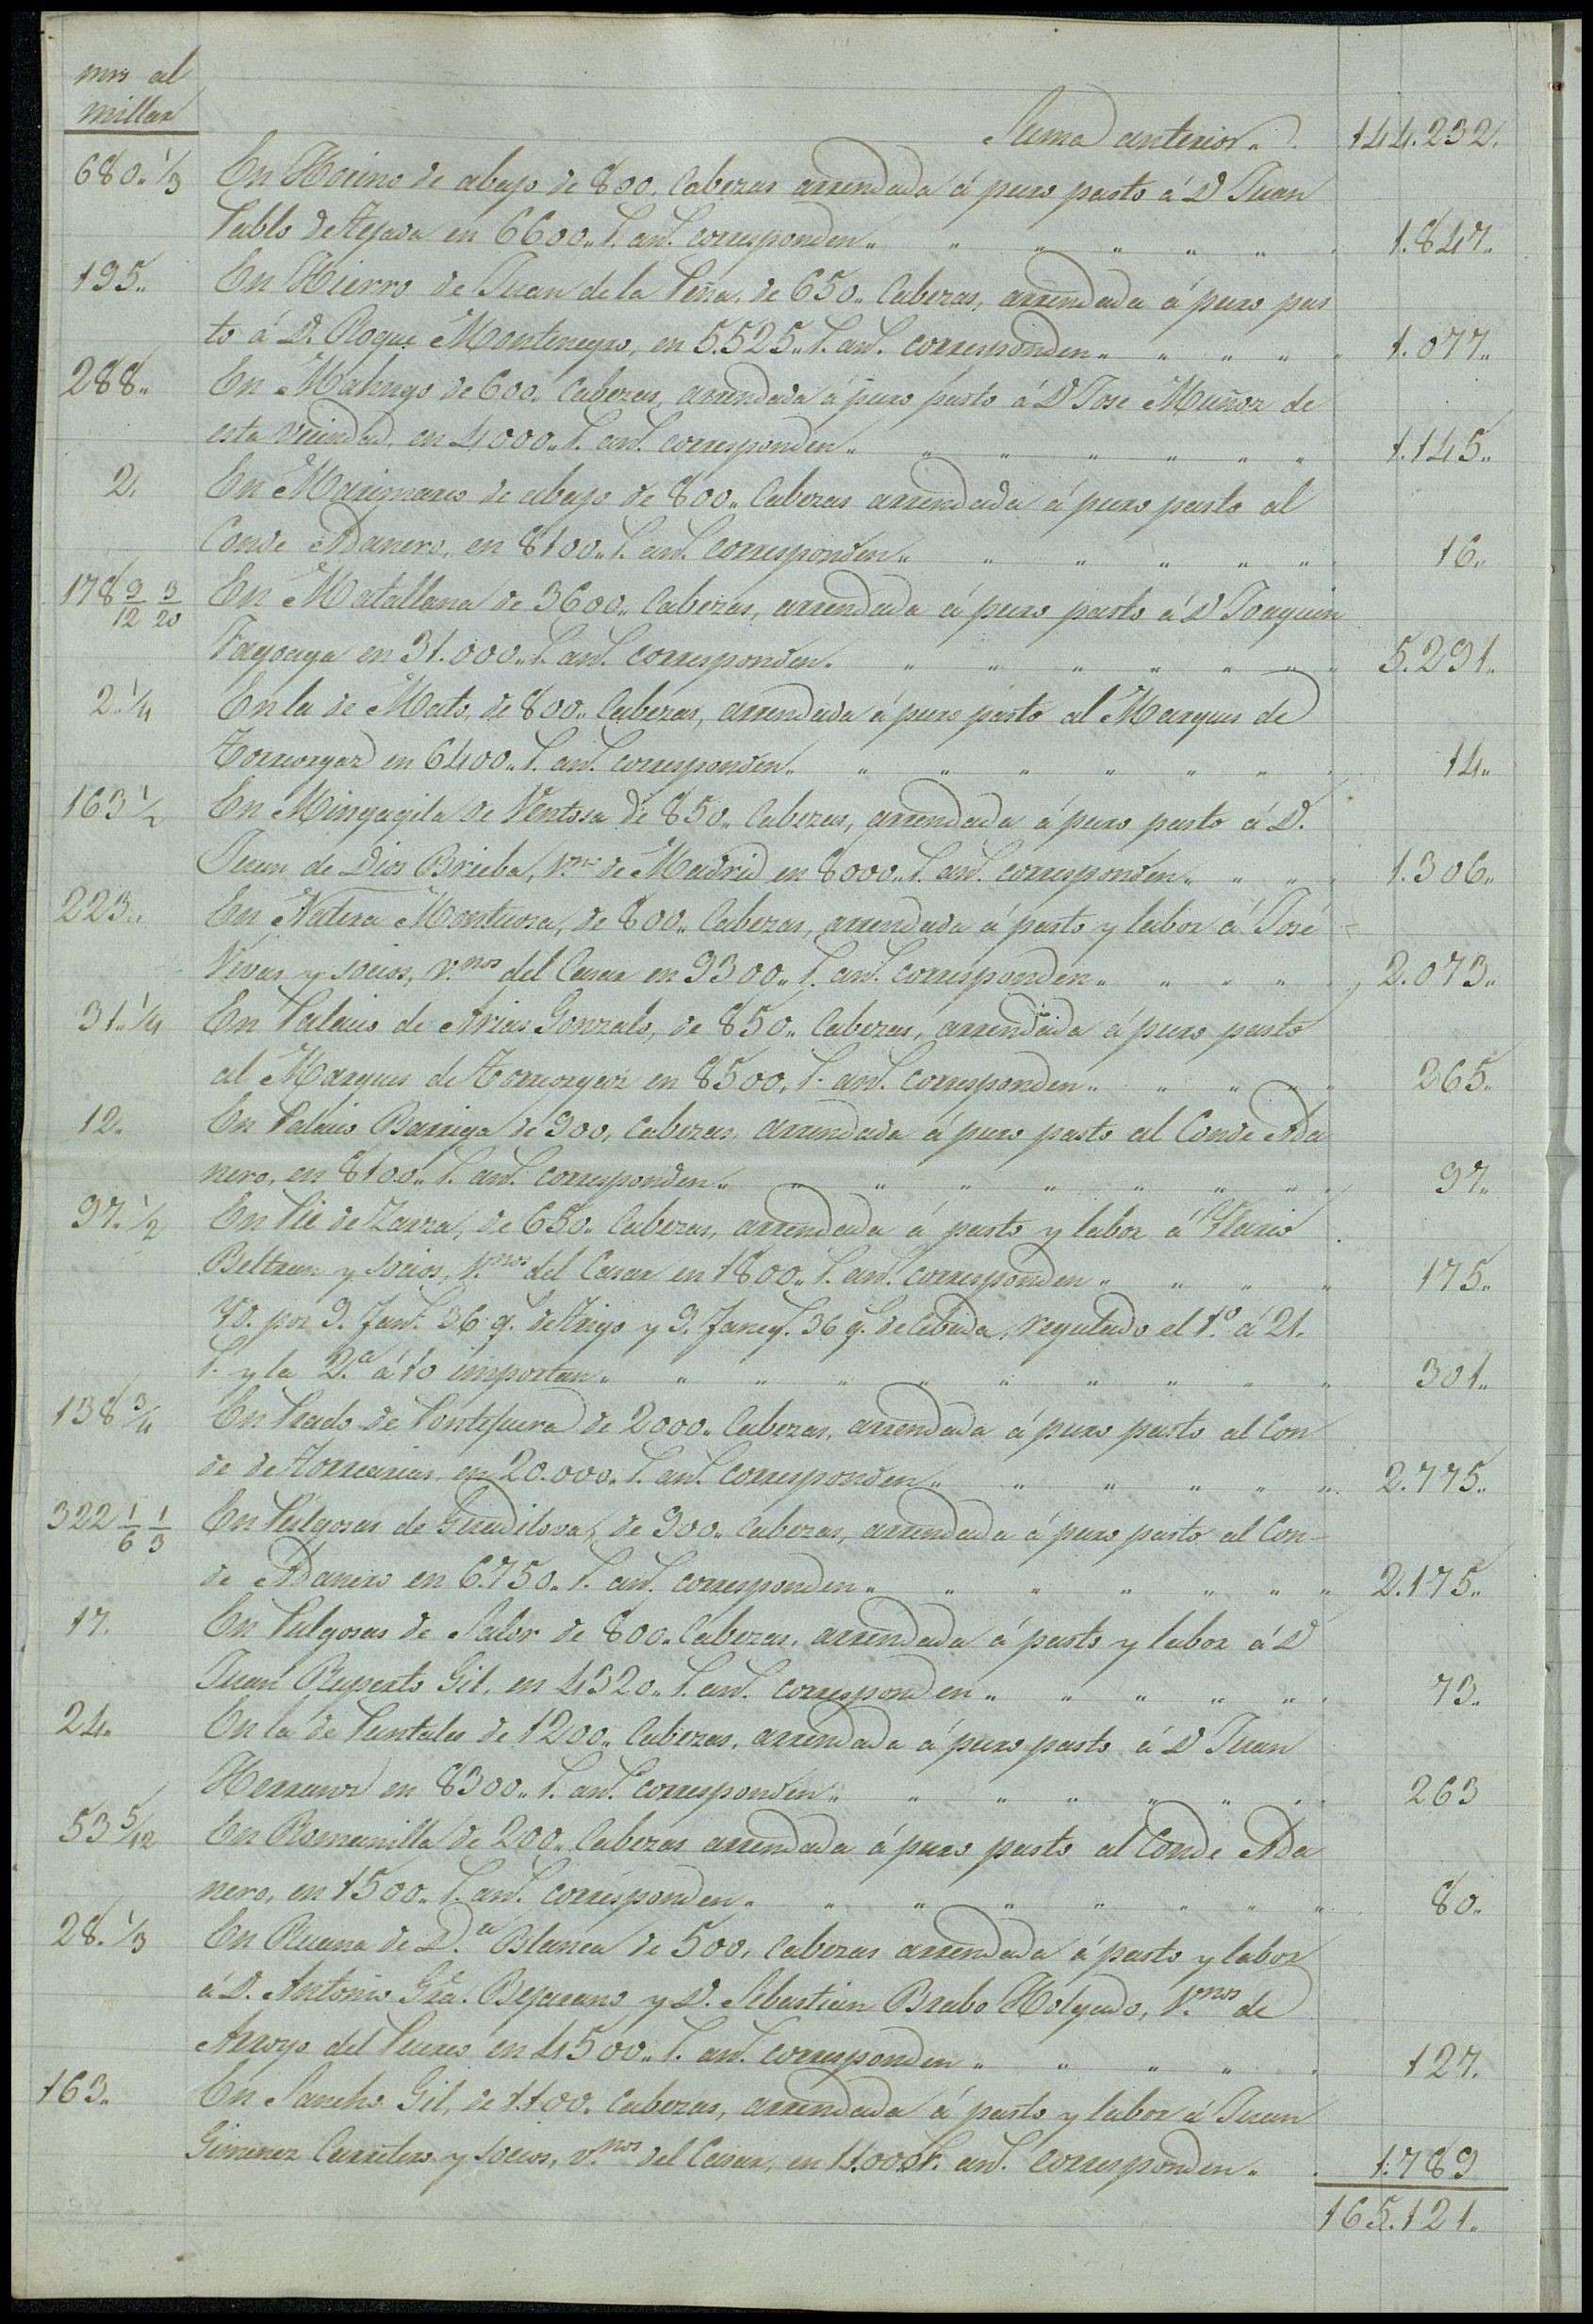 mrs al
millar
Suma anterior " 144.232.
680 " 1/3 En Horino de abajo de 800. Cabezas arrendada á puro pasto á D Juan
Pablo de Tejada en 6600 " r. an. corresponden " " " " " " 1.847 "
195 " En Hierro de Juan de la Peña, de 650 " Cabezas, arrendada á puro pas
to á D. Roque Montenegro, en 5.525 " r. an. corresponden " " " " " 1.077 "
288 " En Mahugo de 600 " Cabezas, arrendada á puro pasto á D José Muñoz de
esta vecindad, en 4000 " r. an. corresponden " " " " " " " 1.145 "
2. En Marimarco de abajo de 800 " Cabezas arrendada á puro pasto al
Conde Adanero, en 8100 " r. an. corresponden " " " " " " 16 "
178 9/12 9/20 En Matallana de 3600 " Cabezas, arrendada á puro pasto á D Joaquin
Fagoaga en 31.000 " r. an. corresponden " " " " " " " 5.291 "
2 " 1/4 En la de Mato, de 800 " Cabezas, arrendada á puro pasto al Marques de
Torreorgaz en 6400 " r. an. corresponden " " " " " " " 14 "
163 1/2 En Mingagila de Ventosa de 850 " Cabezas, arrendada á puro pasto á D.
Juan de Dios Brieba, v.no de Madrid en 8000 " r. an. corresponden " " " " 1.306 "
223 " En Natera Montuosa, de 800 " Cabezas, arrendada á pasto y labor á José
Vivas y socios, v.nos del Casar en 9300 " r. an. corresponden " " " " 2.073 "
31 " 1/4 En Palacio de Arias Gonzalo, de 850 " Cabezas, arrendada á puro pasto
al Marques de Torreorgaz en 8500, r. an. corresponden " " " " " 265 "
12. En Palacio Barriga de 900, Cabezas, arrendada á puro pasto al Conde Ada
nero, en 8100 " r. an. corresponden " " " " " " " " 97 "
97 " 1/2 En Pie de Zarza, de 650 " Cabezas, arrendada á pasto y labor á Ylario
Beltran y socios, v.nos del Casar en 1800 " r. an. corresponden " " " " 175 "
Yd. por 9. fan. 36 q. de trigo y 9. faneg. 36 q. de Cebada, regulado el 1.º á 21.
r. y la 2.ª á 10 importan " " " " " " " " " " 301 "
138 3/4 En Prado de Pontefuera de 2000 " Cabezas, arrendada á puro pasto al Con
de de Torrearias, en 20.000 " r. an. corresponden " " " " " " 2.775 "
322 1/6 1/3 En Pulgosas de Geradilova, de 900 " Cabezas, arrendada á puro pasto al Con-
de Adanero en 6.750 " r. an. corresponden " " " " " " " 2.175 "
17. En Pulgosas de Salor de 800 " Cabezas, arrendada á pasto y labor á D
Juan Ruperto Gil, en 4320 " r. an. corresponden " " " " " 73 "
24. En la de Puntales de 1200 " Cabezas, arrendada á puro pasto á D Juan
Herranz en 8300 " r. an. corresponden " " " " " " " 263
53 5/12 En Romanilla de 200 " Cabezas arrendada á puro pasto al Conde Ada
nero, en 1500 " r. an. corresponden " " " " " " " " 80 "
28. 1/3 En Ruana de D.ª Blanca de 500, Cabezas arrendada á pasto y labor
á D. Antonio Gra. Bejarano y D. Sebastian Brabo Holgado, v.nos de
Arroyo del Puerco en 4500 " r. an. corresponden " " " " 127.
163 " En Sancho Gil, de 1100 " Cabezas, arrendada á pasto y labor á Juan
Gimenez Carretero y socios, v.nos del Casar, en 11.000 r. an. corresponden " 1.789
165.121.